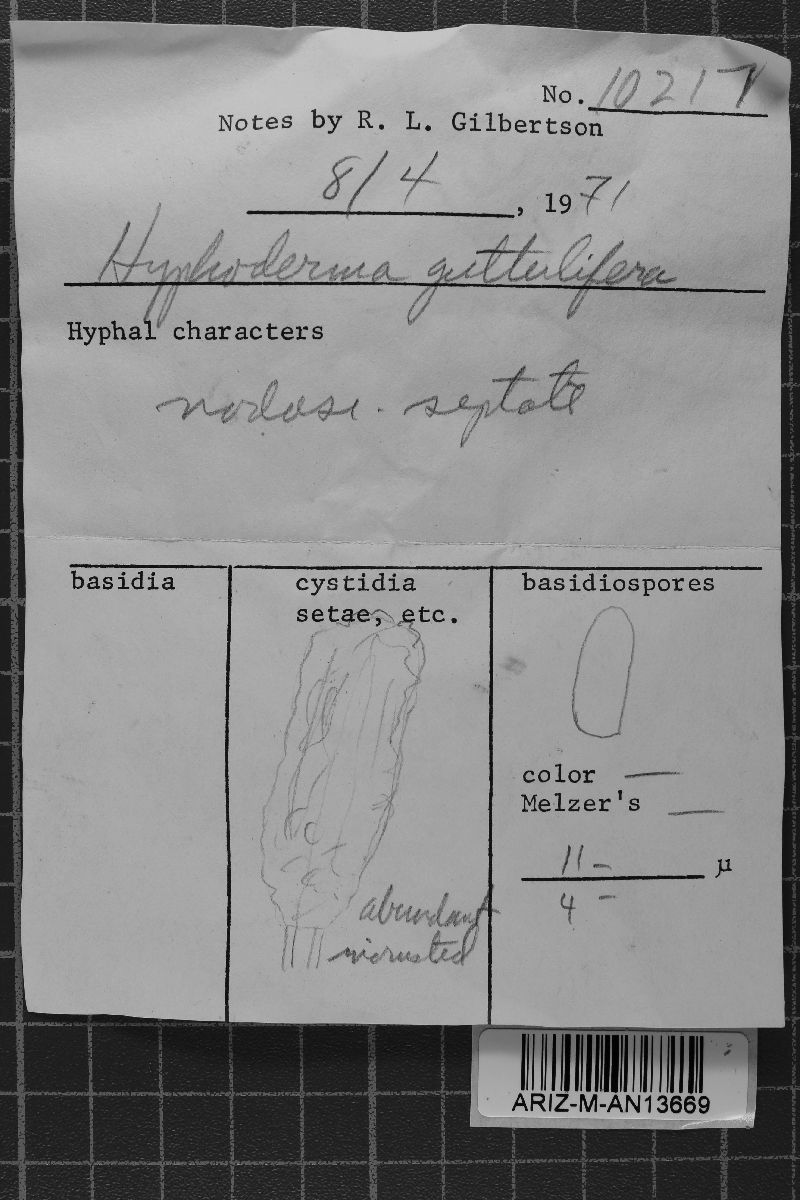 No. 10217
Notes by R. L. Gilbertson
8/4, 1971
Hyphoderma guttulifera
Hyphal characters
nodose-septate
basidia
cystidia
setae, etc.
abundant
incrusted
basidiospores
color —
Melzer's —
11 - µ
4 -
ARIZ-M-AN13669